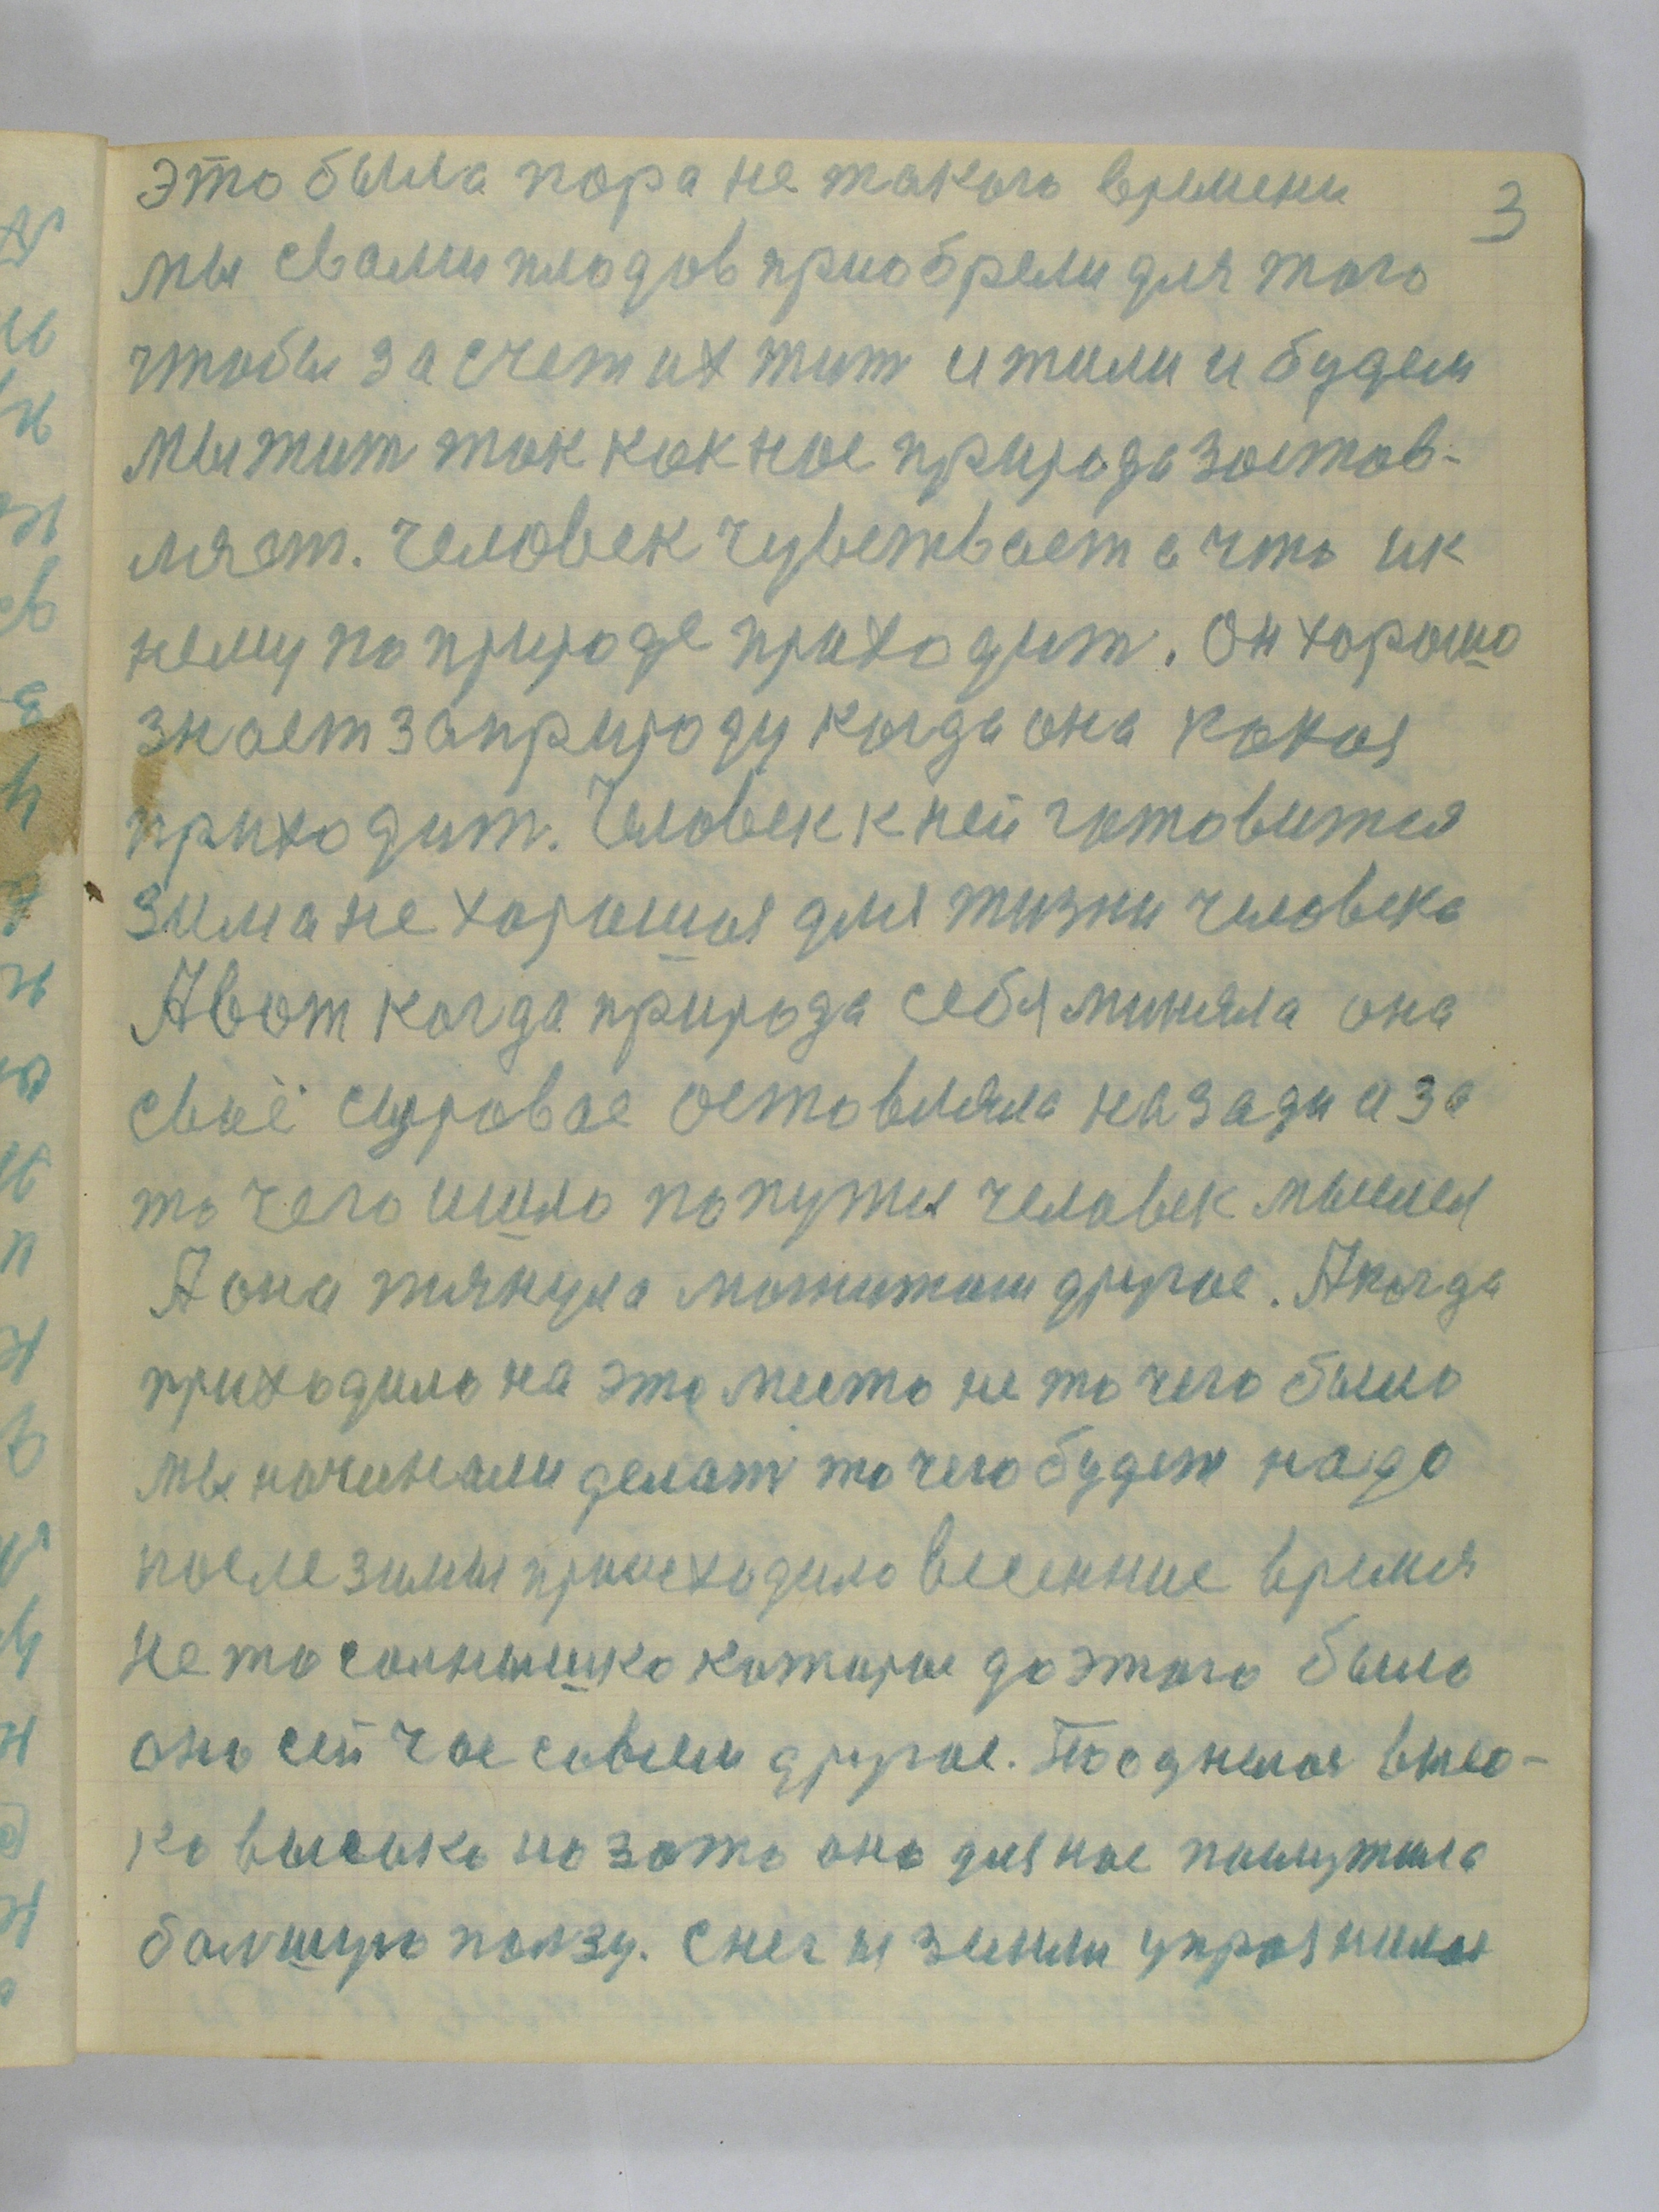 3
это была пора не такого времени
мы свами плодов приобрели для того
чтобы за счет их жит и жили и будем
мы жит так как нас природа застав-
ляет. Человек чувствает а что ик
нему по природе приходит. Он хорошо
знает за природу когда она какая
приходит. Человек к ней готовится
зима не хорошая для жизни человека
А вот когда природа себя миняла она
своё суровое оставляла назади а за
то чего ишло по путя человек мылся
А она тянула другое. А когда
приходило на это место не то чего было
мы начинали делат то чего будет надо
после зимы происходило весенние время
не то солнышко которое до этого было
оно сей час совсем другое. Поднялося высо-
ко высоко но зато оно для нас
болшую ползу. Снег и земли